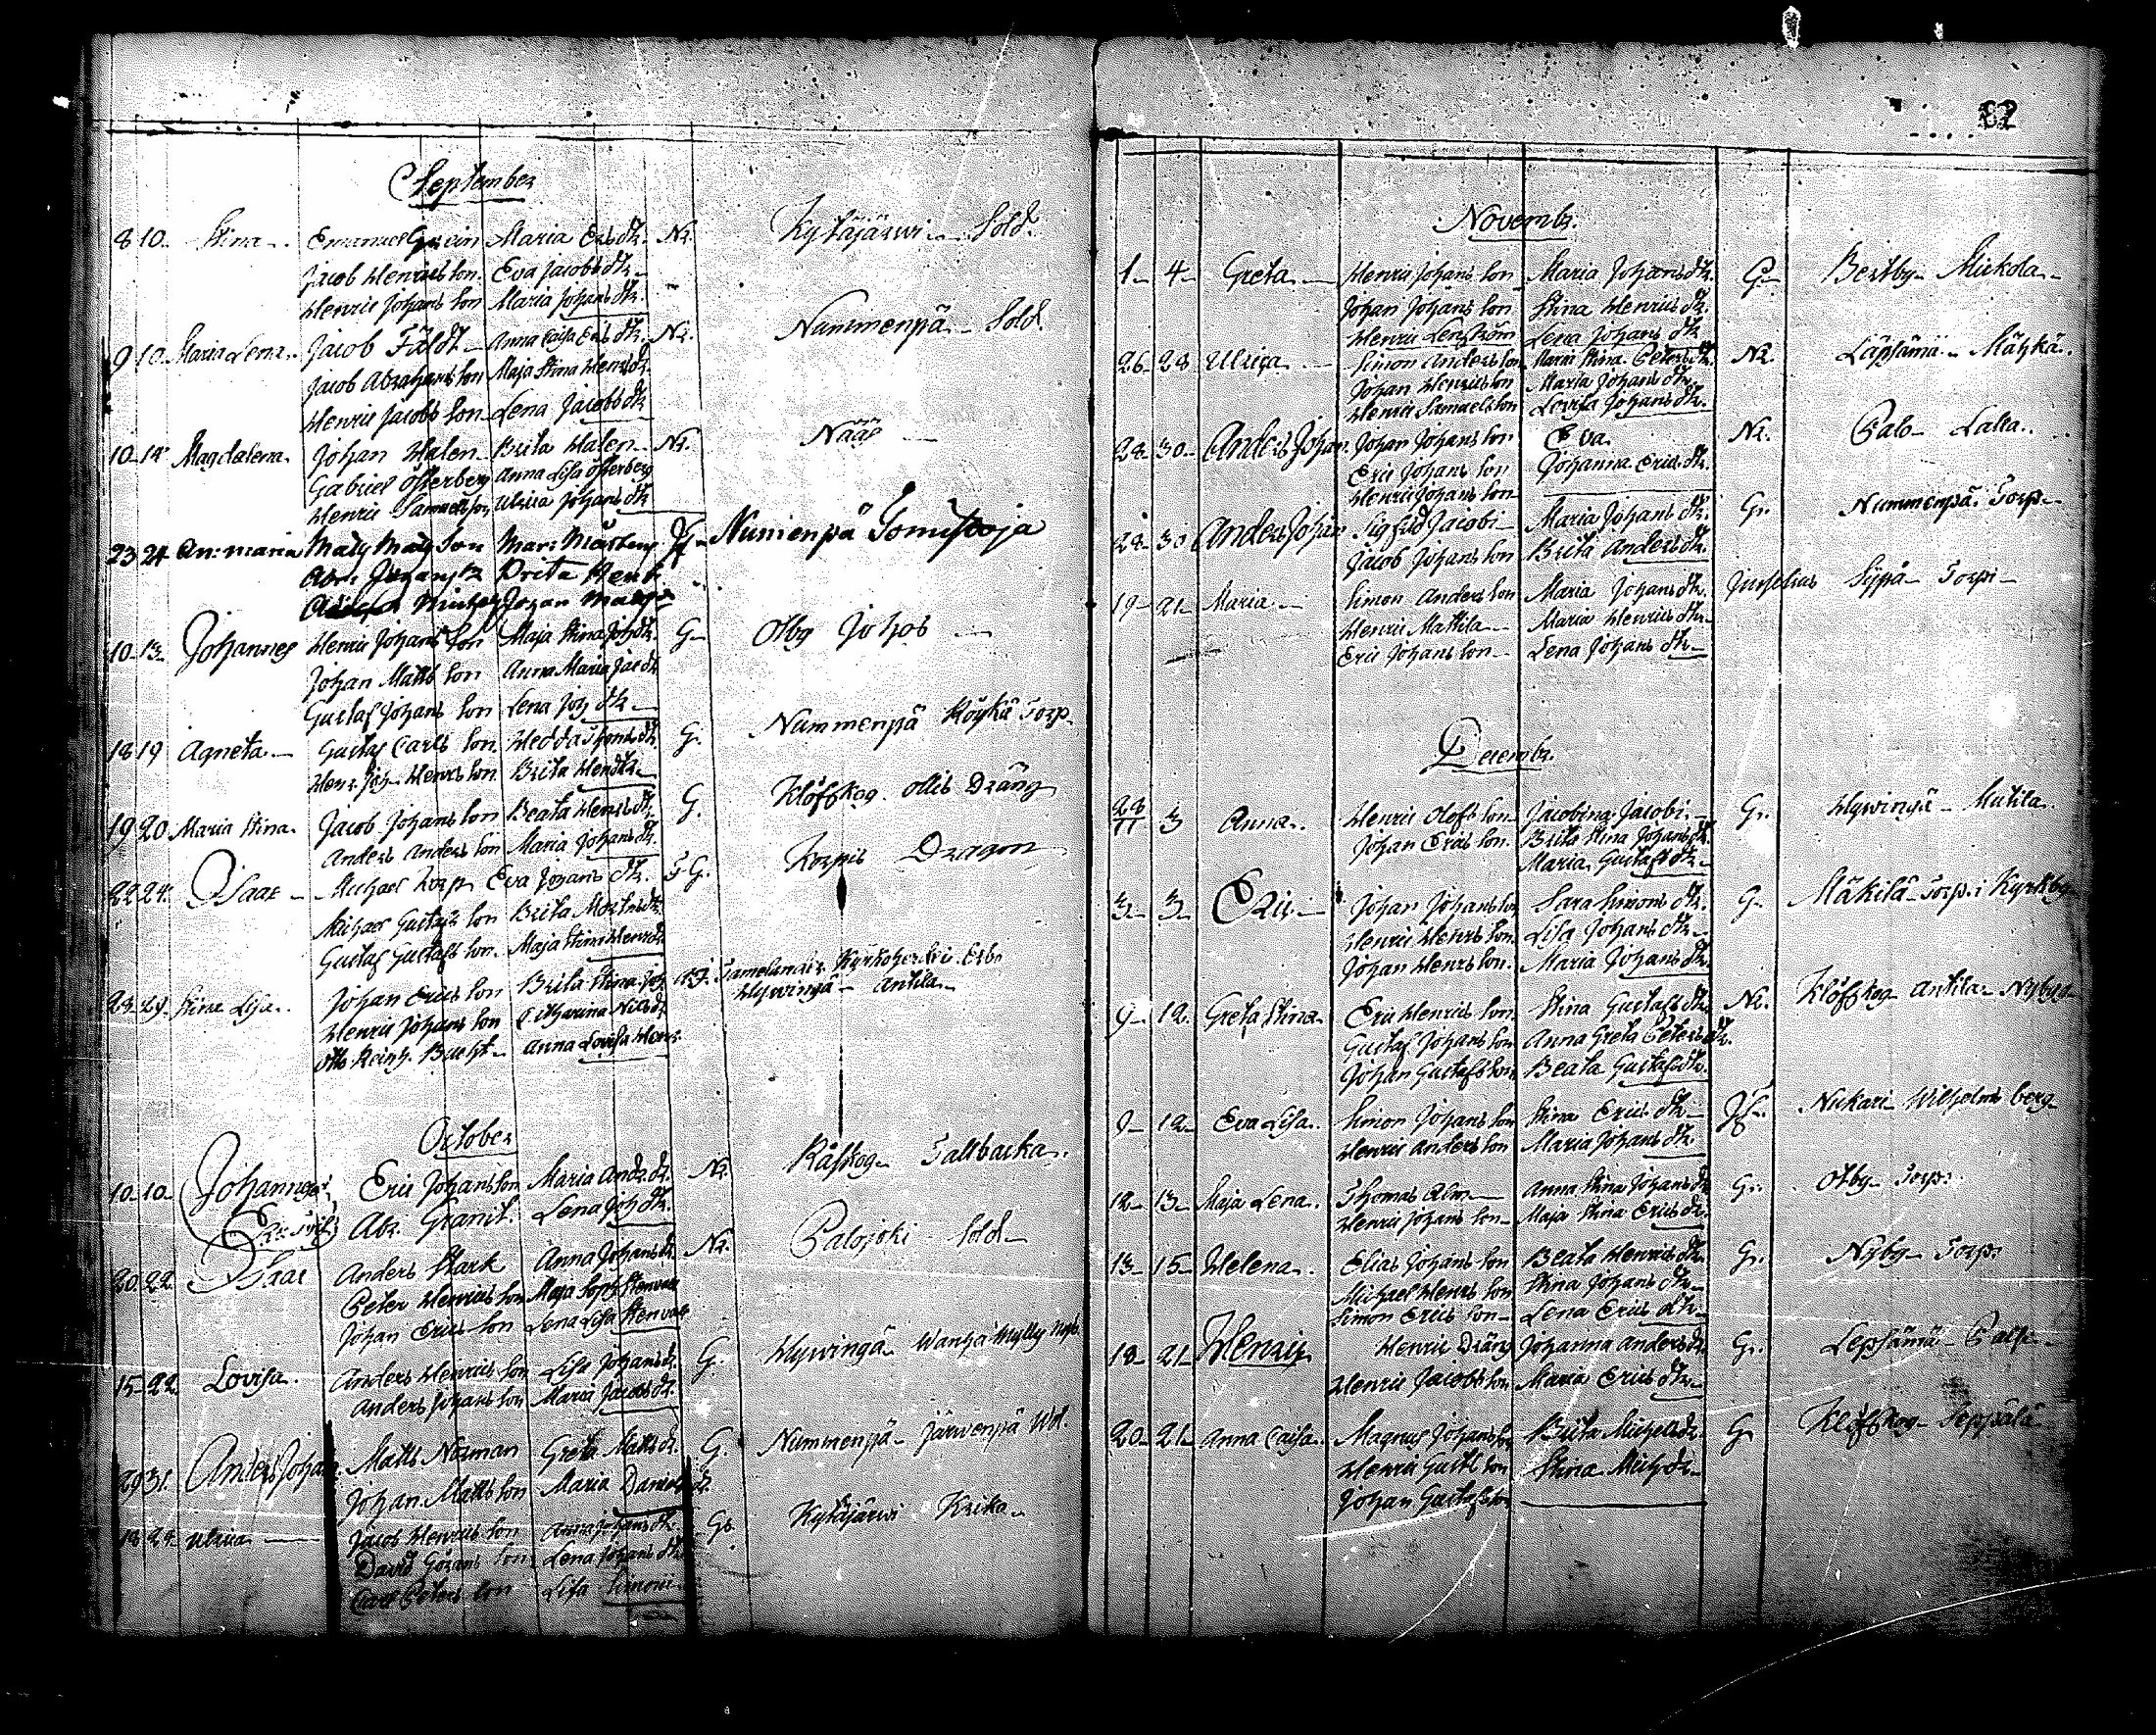 September
8 10 Stina Emanuel Maria Ersdtr. Nr. Kytäjärwi Sold.
Jacob Henricsson Eva Jacobsdtr
Henric Johansson Maria Johansdtr.
9 10 Maria Lena Jacob Fäldt Anna Caisa Ersdtr. Nr. Nummenpä Sold.
Jacob Abrahamsson Maja Stina Henrsdtr.
Henric Jacobsson Lena Jacobsdtr
10 Magdalena Johan Halen Brita Halen Nr. Nääs
Gabriel Österberg Anna Lisa Österberg
Henric Samuelsson Ulrica Johansdtr
23 24 An: maria Mats Mats Son Numenpä
Brita Henr
10 13 Johannes Henric Johansson Maja Stina Johdtr. G Otby Johos
Johan Mattsson Anna Maria Jacdtr
Gustaf Johansson Lena Johdtr
18 19 Agneta Gustaf Carlsson Hedda dtr G. Nummenpä Röykä Torp.
Henr. Joh. Henrsson Brita Hendtr.
19 20 Maria Stina Jacob Johansson Beata Henrsdtr. G. Klöfskog Ollis Dräng
Anders Andersson Maria Johansdtr.
22 24 Isaac Michael Korp Eva Johansdtr. G. Korpis Dragon
Michael Gustafsson Brita
Gustaf Gustafsson Maja Stina Henrsdtr
29 Stina Lisa Johan Ericsson Brita Stina Joh Kyrkoherde
Hywingä Antila
Henric Johansson Catharina
Otto Reinh. Bucht Anna Lovisa Henr
October
10 10 Johannes Eric Johansson Maria Andr.dr. Nr. Råskog Tallbacka
Abr. Granit. Lena Johdtr.
20 22 Isaac Anders Stark Anna Johansdr Nr. Palojoki Sold
Peter Henricsson Maja Stenvall
Johan Ericsson Lena Lisa Stenvall
15 22 Lovisa Anders Henricsson Lisa Johansdr. G. Hywingä Wanha Mylly
Anders Johansson Maria Jacobsdr.
29 31 Anders Johan Matts Norman Greta Mattsdr. G. Nummenpä Järwenpä
Johan Mattsson Maria Danielsdr.
24 Ulrica Jacob Henricsson Anna Johansdtr. Gr. Kytäjärwi Krika
David Göransson Lena Johansdtr
Carl Petersson Lisa Simonsdr
82
Novembr.
1 4 Greta Henric Johansson Maria Johansdtr. G. Bertby Mickola
Johan Johansson Stina Henricsdtr.
Henric Lenström Lena Johansdtr
26 28 Ulrica Simon Andersson Maria Stina Petersdtr. Nr. Läpsämä Mätkä
Johan Henricsson Maria Johansdtr.
Henric Samuelsson Lovisa Johansdtr.
28 30 Anders Johan Johan Johansson Eva Nr. Palo Lalla
Eric Johansson Johanna Ericsdtr.
Henric Johansson
28 30 Anders Johan Sigfrid Jacobi Maria Johansdtr. Gr. Nummenpä Torp
Jacob Johansson Brita Andersdtr.
19 21 Maria Simon Andersson Maria Johansdtr. Torp
Henric Mattila Maria Henricsdtr
Eric Johansson Lena Johansdtr
Decembr.
28/11 3 Anna Henric Olofsson Jacobina Jacobi Gr. Hywingä Mutila
Johan Ericsson Brita Stina Johansdtr.
Maria Gustafsdtr
3 3 Eric Johan Johansson Sara Simonsdtr. G. Mäkilä Torp i Kyrkby
Henric Henrsson Lisa Johansdtr
Johan Henrsson Maria Johansdtr
9 12 Greta Stina Eric Henricsson Stina Gustafsdtr Nr. Klöfskog Antila Nybyg.
Gustaf Johansson Anna Greta Petersdtr.
Johan Gustafsson Beata Gustafsdtr.
9 12 Eva Lisa Simon Johansson Stina Ericsdtr Nukari Wilhelmsberg
Henric Andersson Maria Johansdtr.
12 13 Maja Lena Thomas Alm Anna Stina Johansdr Gr. Otby Torp
Henric Johansson Maja Stina Ericsdr.
13 15 Helena Elias Johansson Beata Henricsdtr Gr. Nyby Torp
Michael Henrsson Stina Johansdtr
Simon Ericsson Lena Ericsdtr
18 21 Henric Henric Dräng Johanna Andersdr Gr. Lepsämä
Henric Jacobsson Maria Ericsdtr
20 21 Anna Caisa Magnus Johansson Brita Michelsdr. G. Klöfskog Seppälä
Henric Gustsson Stina Michsdr
Johan Gustafsson